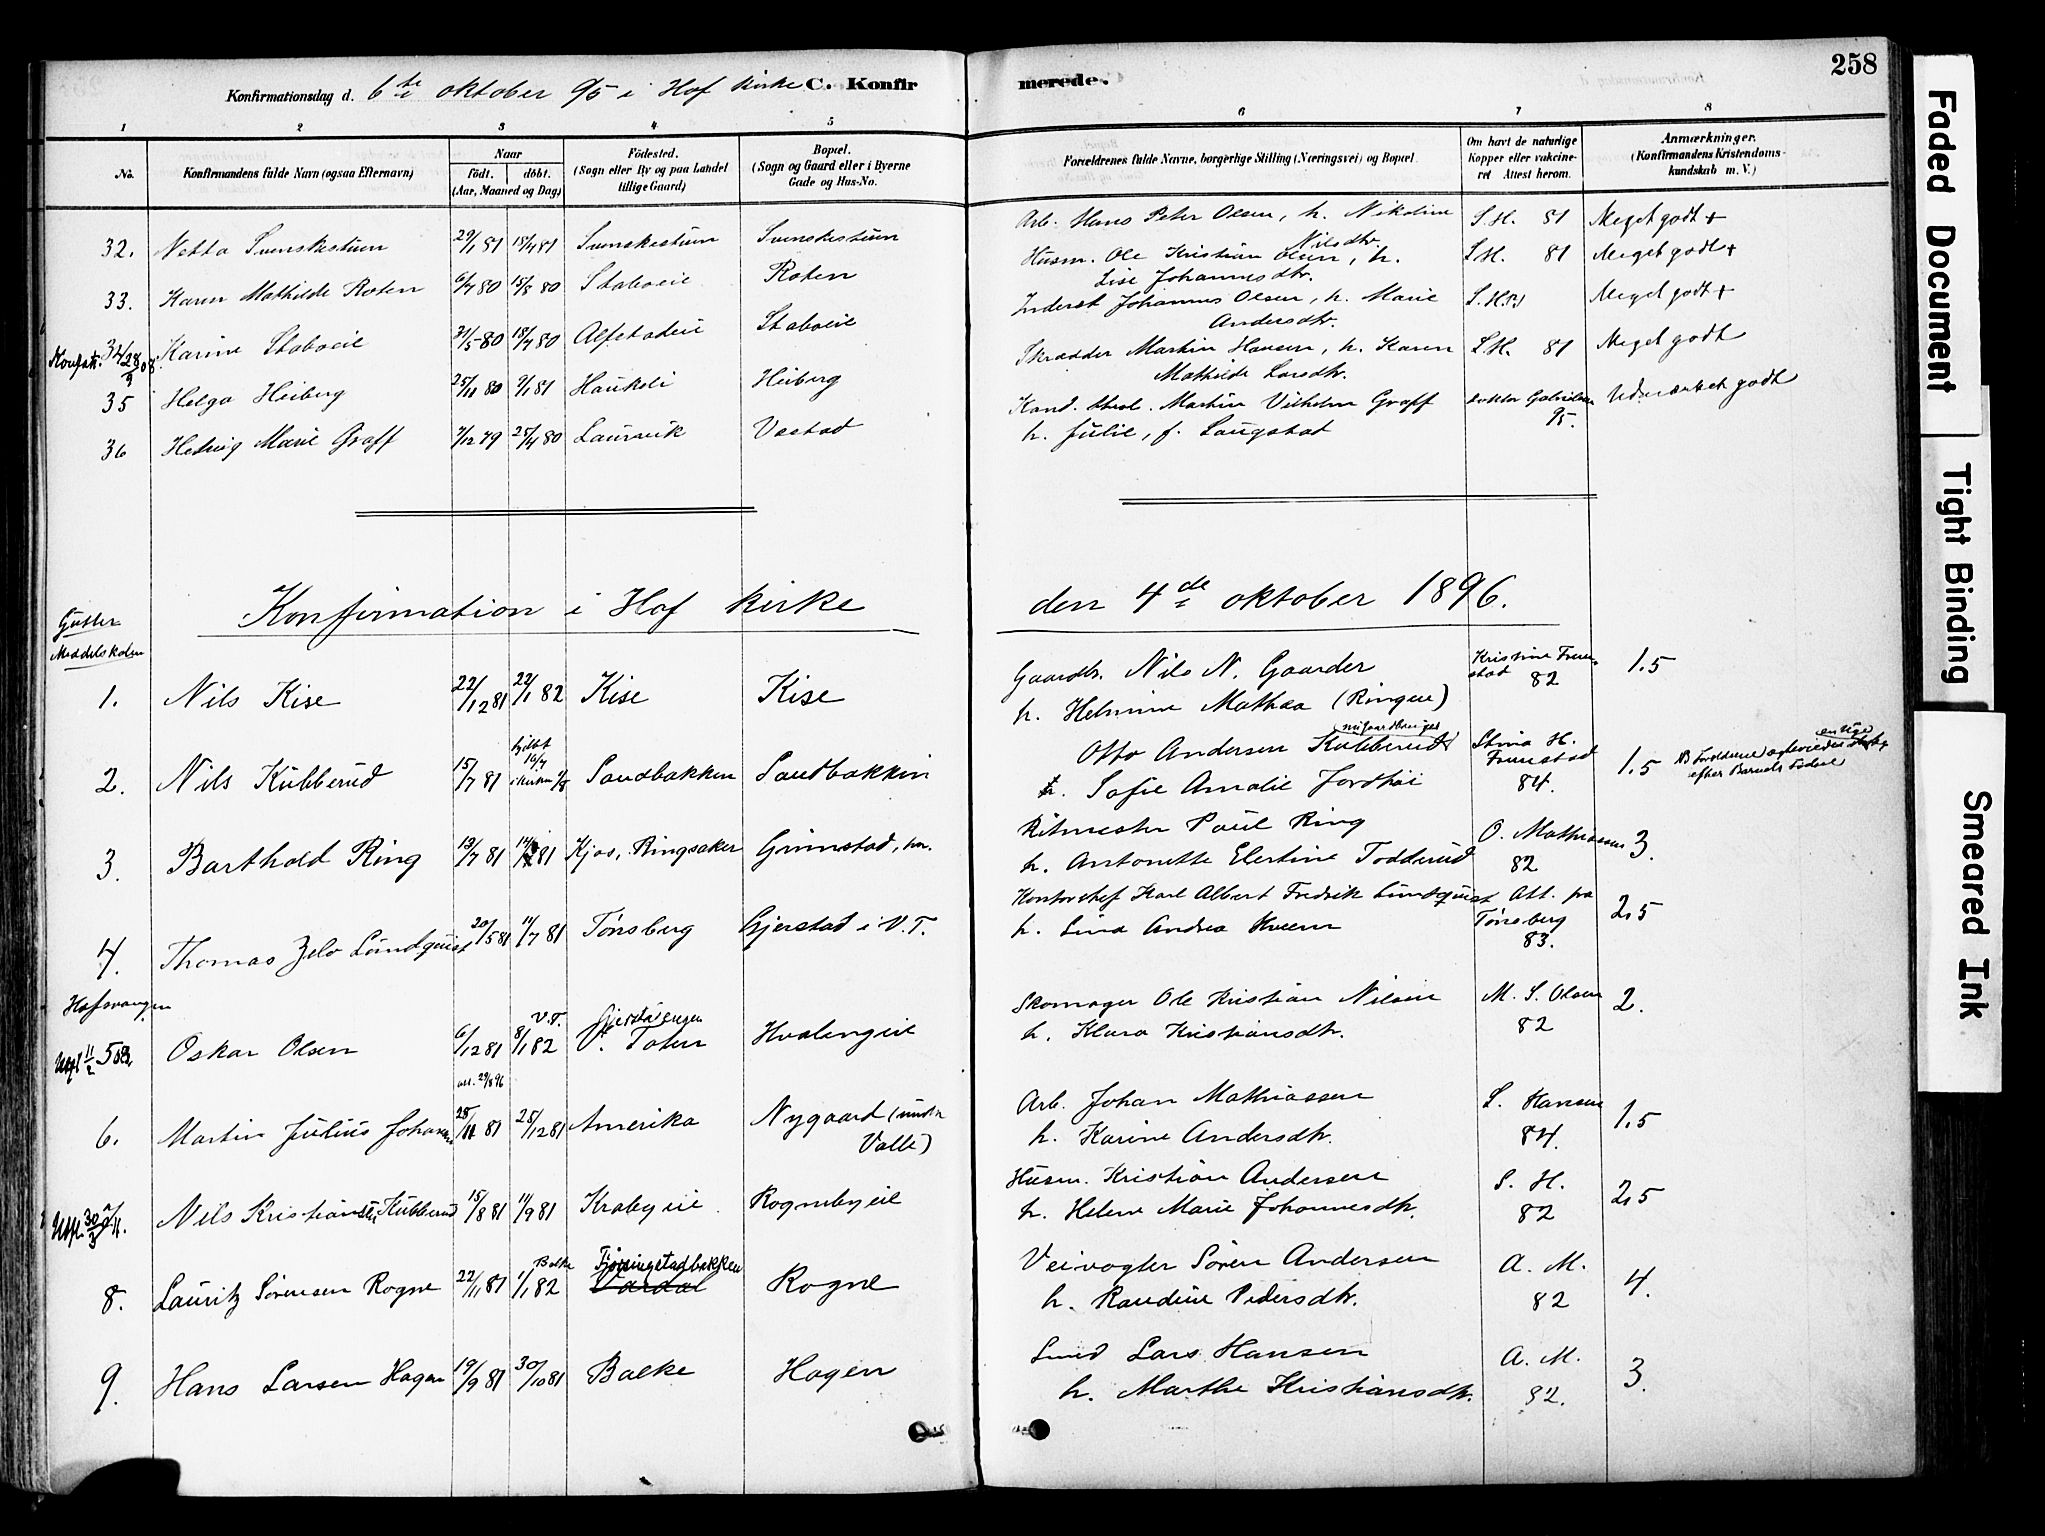 258
Konfirmationsdag d. 6te oktober 95 i Hof kirke C. Konfir
merede.
1 2 3 4 5 6 7 8
No. Konfirmandens fulde Navn (ogsaa Efternavn)
Naar
født. døbt.
(Aar, Maaned og Dag)
Fødested.
(Sogn eller By og paa Landet
tillige Gaard)
Bopæl.
(Sogn og Gaard eller i Byerne
Gade og Hus-No.
Forældrenes fulde Navne, borgerlige Stilling (Næringsvei) og Bopæl.
Om havt de naturlige
Kopper eller vakcine-
ret Attest herom.
Anmærkninger.
(Konfirmandens Kristendoms-
kundskab m. V.)
32. Netta Svenskestuen 29/1 81 18/4 81 Svenskestuen Svenskestuen
Arb. Hans Peter Olsen, h. Nikoline Nilsdtr. S. H. 81 Meget godt +
33. Karen Mathilde Roten 6/7 80 15/8 80 Staboeie Roten
Husm. Ole Kristian Olsen, h. S. H. 81 Meget godt +
Lise Johannesdtr.
34 Karine Staboeie 31/5 80 18/7 80 Alfstadeie Staboeie
Inderst Johannes Olsen, h. Marie S. H. Meget godt +
Andersdtr.
35 Helga Heiberg 25/11 80 9/1 81 Haukeli Heiberg
Skrædder Martin Hansen, h. Karen S. H. 81 Meget godt
Mathilde Larsdtr.
36 Hedvig Marie Graff 7/12 79 25/4 80 Laurvik Vestad
Kand. theol. Martin Vilhelm Graff doktor 95. Udmærket godt
h. Julie, f. Laugstad
Konfirmation i Hof kirke den 4de oktober 1896.
Gutter
Middelskolen
1. Nils Kise 22/12 81 22/1 82 Kise Kise
Gaardbr. Nils N. Gaarder Kristine Fruenstad 82 1.5
h. Helmine Mathea (Ringen)
2. Nils Kubberud 15/7 81 Sandbakken Sandbakken
Otto Andersen Kubberud Stina H. Fruenstad 84. 1.5
h. Sofie Amalie Jordhøi
3. Barthold Ring 13/7 81 Kjos, Ringsaker Grimstad
Ritmester Paul Ring O. Mathiassen 82 3.
h. Antonette Elertine Todderud
4. Thomas Lundquist 20/5 81 11/7 81 Tønsberg Gjerstad i V. T.
Kontorchef Karl Albert Fredrik Lundquist Att. fra Tønsberg 83. 2,5
h. Lina Andrea Hveem
Hofsvangen
5. Oskar Olsen 6/12 81 V.T. 8/1 82 V. Toten Hvalengeie
Skomager Ole Kristian Nilsen M. S. Olsen 82 2.
h. Klara Kristiansdtr.
att. 29/8 96
6. Martin Julius Johansen 28/11 81 25/12 81 Amerika Nygaard (under
Valle)
Arb. Johan Mathiassen S. Hansen 84. 1.5
h. Karine Andersdtr.
Nils Kristiansen Kubberud 15/8 81 11/9 81 Krabyeie Rognebyeie
Husm. Kristian Andersen S. H. 82 2,5
h. Helene Marie Johannesdtr.
8. Lauritz Sørensen Rogne 22/11 81 1/1 82 Balke Vardal Rogne
Veivogter Søren Andersen A. M. 82 4.
h. Randine Pedersdtr.
9. Hans Larsen Hagen 19/9 81 30/10 81 Balke Hagen
Smed Lars Hansen A. M. 82. 3.
h. Marthe Kristiansdtr.
Faded Document
Tight Binding
Smeared Ink